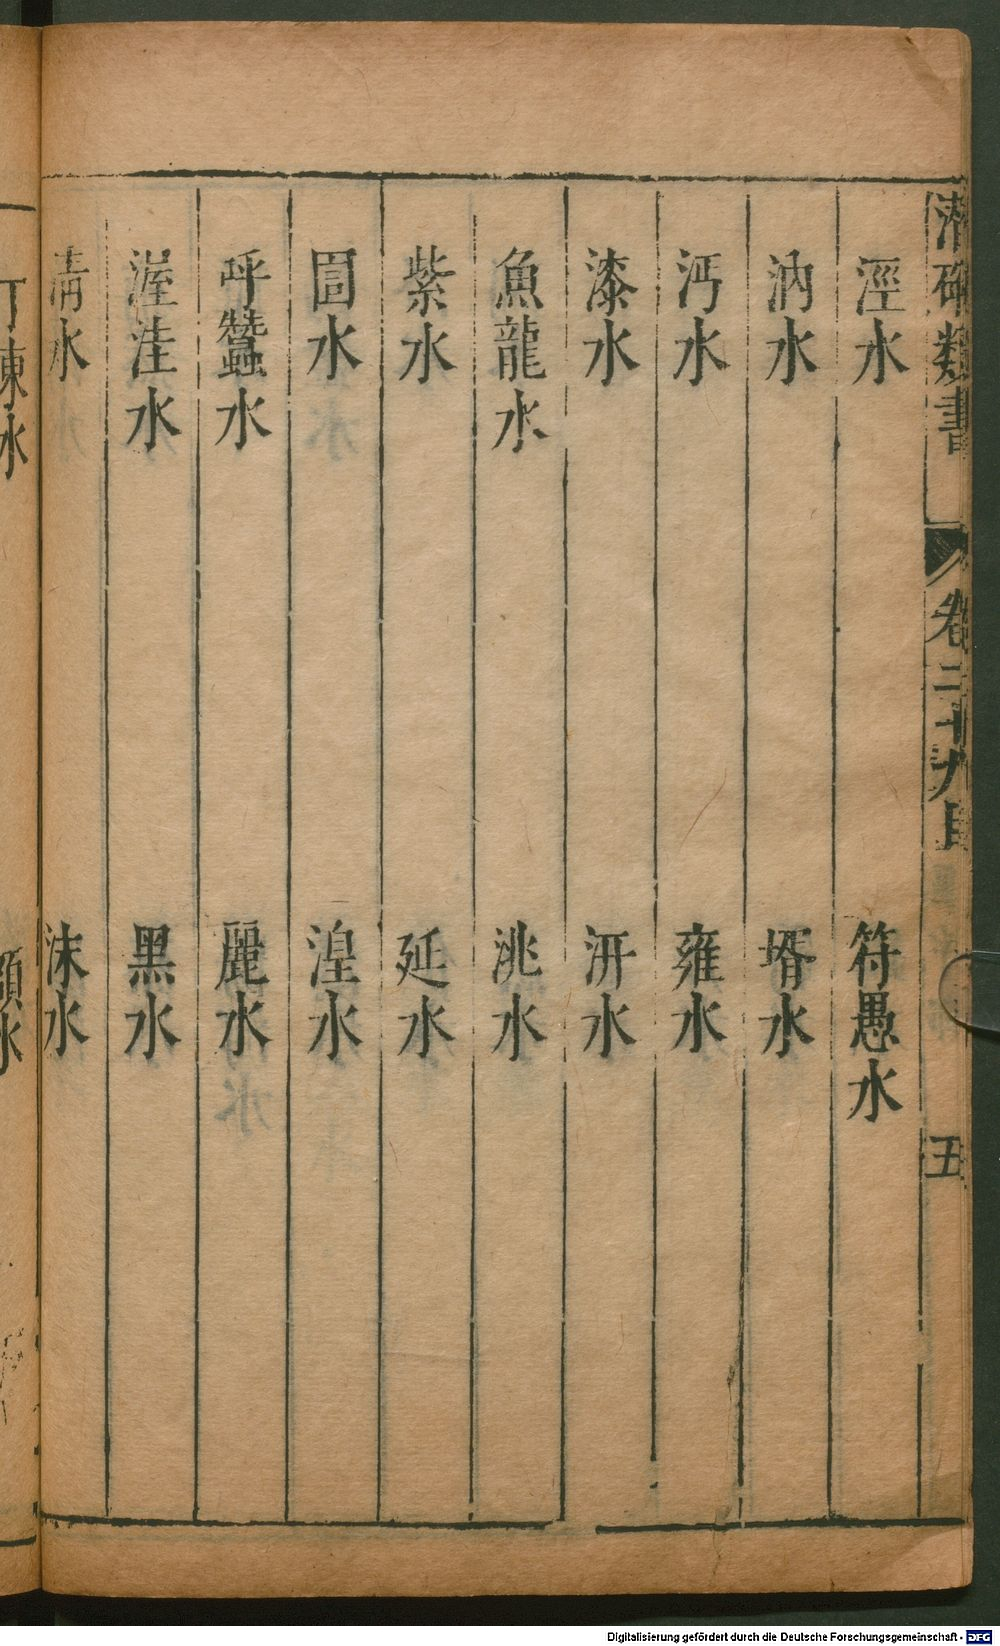 潛確類書
卷二十九目
五
涇水
符愚水
汭水
壻水
沔水
雍水
漆水
汧水
魚龍水
洮水
紫水
延水
圁水
湟水
呼蠶水
麗水
渥洼水
黑水
清水
沫水
水
水
Digitalisierung gefördert durch die Deutsche Forschungsgemeinschaft - DFG